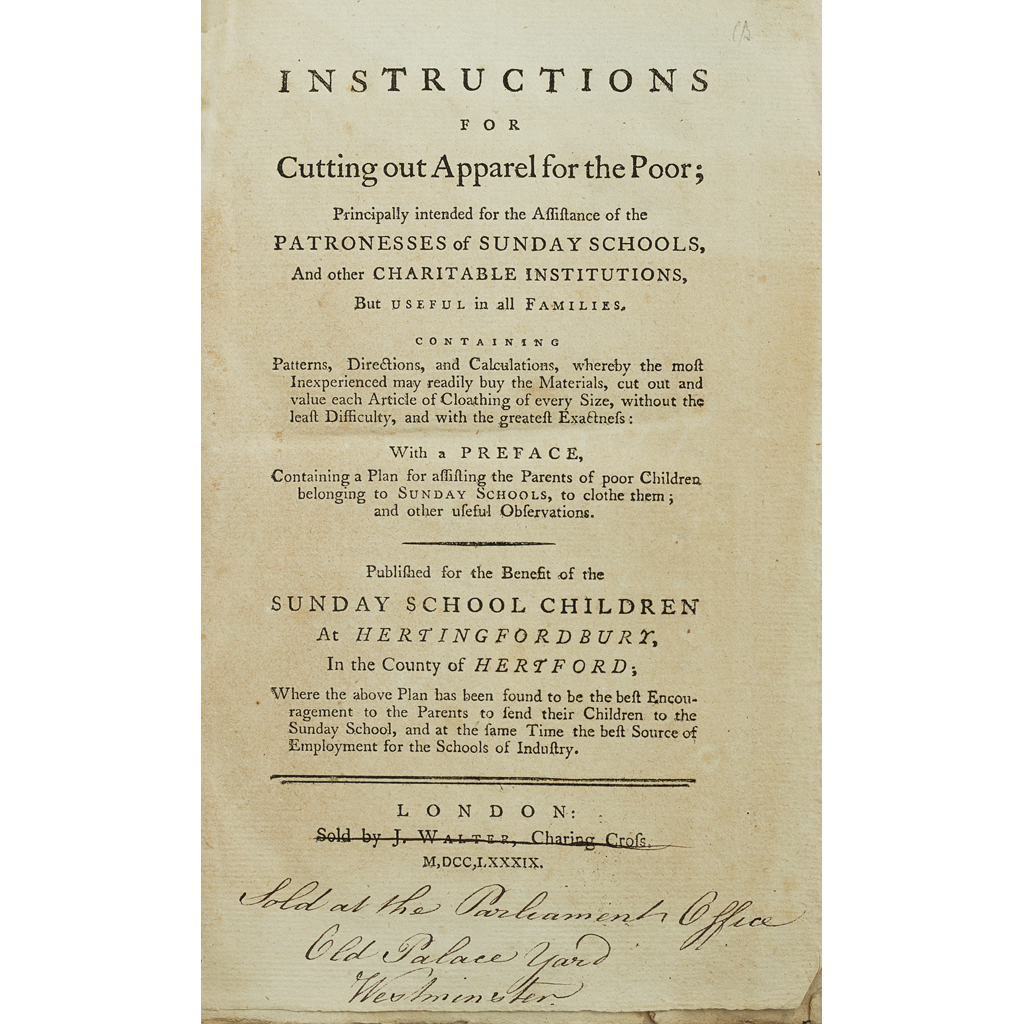 INSTRUCTIONS
FOR
Cutting out Apparel for the Poor;
Principally intended for the Aſſiſtance of the
PATRONESSES of SUNDAY SCHOOLS,
And other CHARITABLE INSTITUTIONS,
But USEFUL in all FAMILIES.
CONTAINING
Patterns, Directions, and Calculations, whereby the moſt
Inexperienced may readily buy the Materials, cut out and
value each Article of Cloathing of every Size, without the
leaſt Difficulty, and with the greateſt Exactneſs:
With a PREFACE,
Containing a Plan for aſſiſting the Parents of poor Children
belonging to SUNDAY SCHOOLS, to clothe them;
and other uſeful Obſervations.
Publiſhed for the Benefit of the
SUNDAY SCHOOL CHILDREN
At HERTINGFORDBURY,
In the County of HERTFORD;
Where the above Plan has been found to be the beſt Encou-
ragement to the Parents to ſend their Children to the
Sunday School, and at the ſame Time the beſt Source of
Employment for the Schools of Induſtry.
LONDON:
Sold by J. WALTER, Charing Croſs.
M,DCC,LXXXIX.
Sold at the Parliament Office
Old Palace Yard
Westminster.